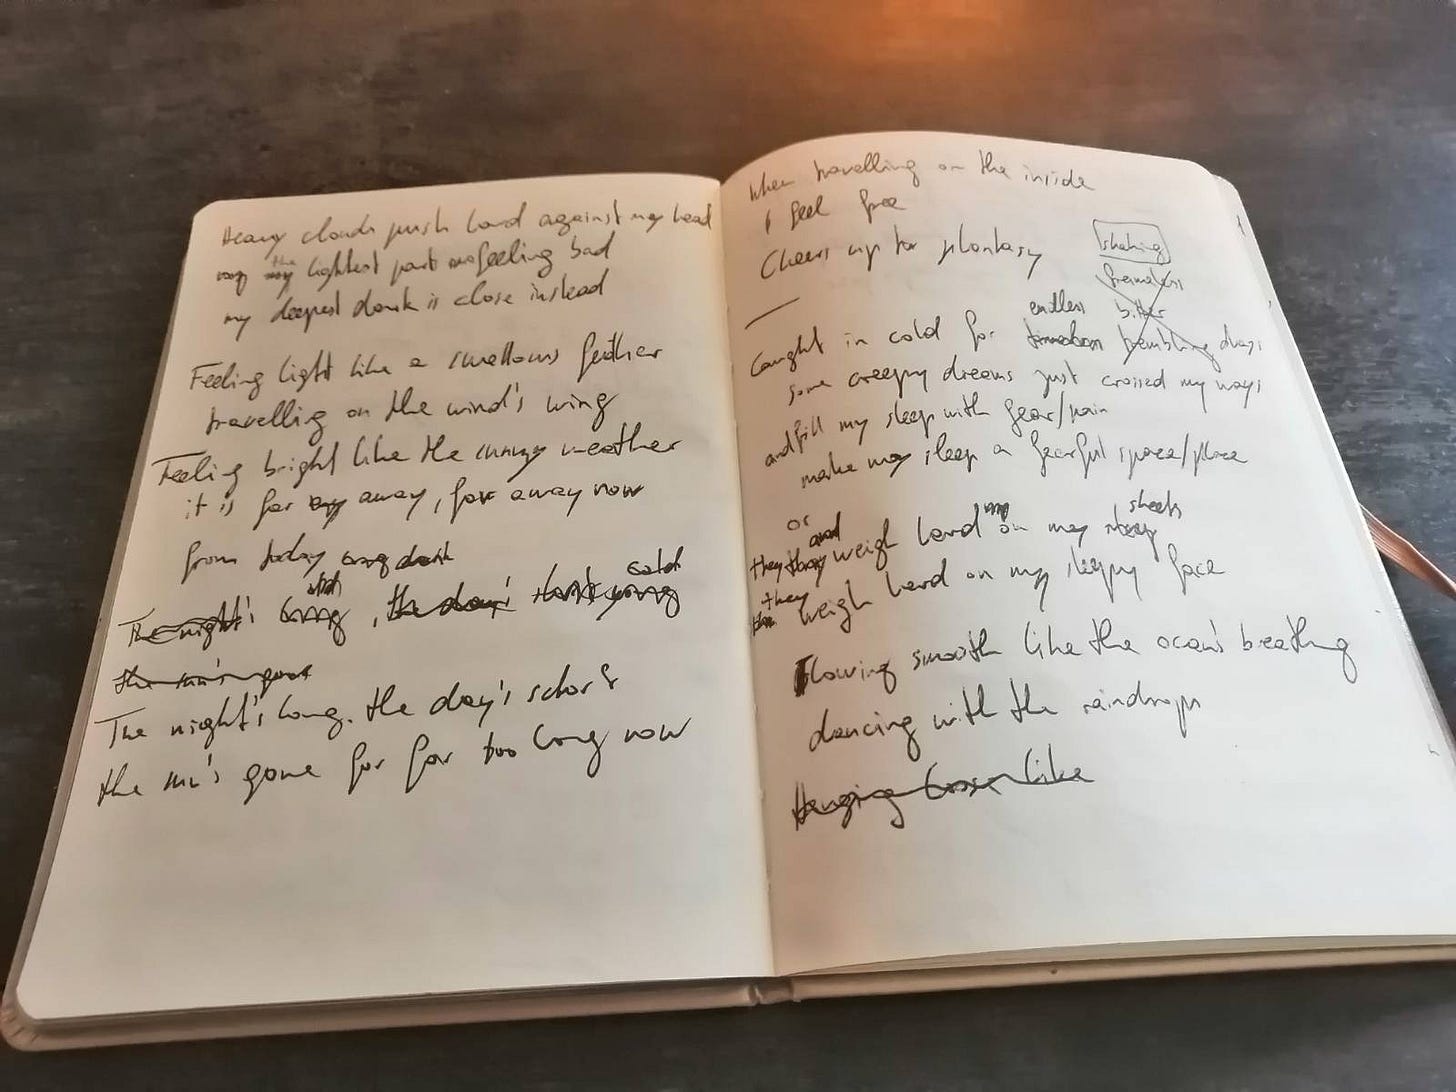 Heavy clouds push hard against my head
my the lightest part is feeling bad
my deepest dark is close instead
Feeling light like a swallows feather
travelling on the wind's wing
Feeling bright like the sunny weather
it is far away, far away now
from today
The night's long, the day's
the sun's gone
The night's long. the day's short
the sun's gone for far too long now
When travelling on the inside
I feel free
Cheers up to phantasy
shaking
endless bitter
Caught in cold for trembling days
some creepy dreams just crossed my ways
and fill my sleep with fear/pain
make my sleep a fearful space/place
or and sheets
they weigh hard on my sleep
they weigh hard on my sleepy face
Flowing smooth like the ocean's breathing
dancing with the raindrops
Hanging loose like